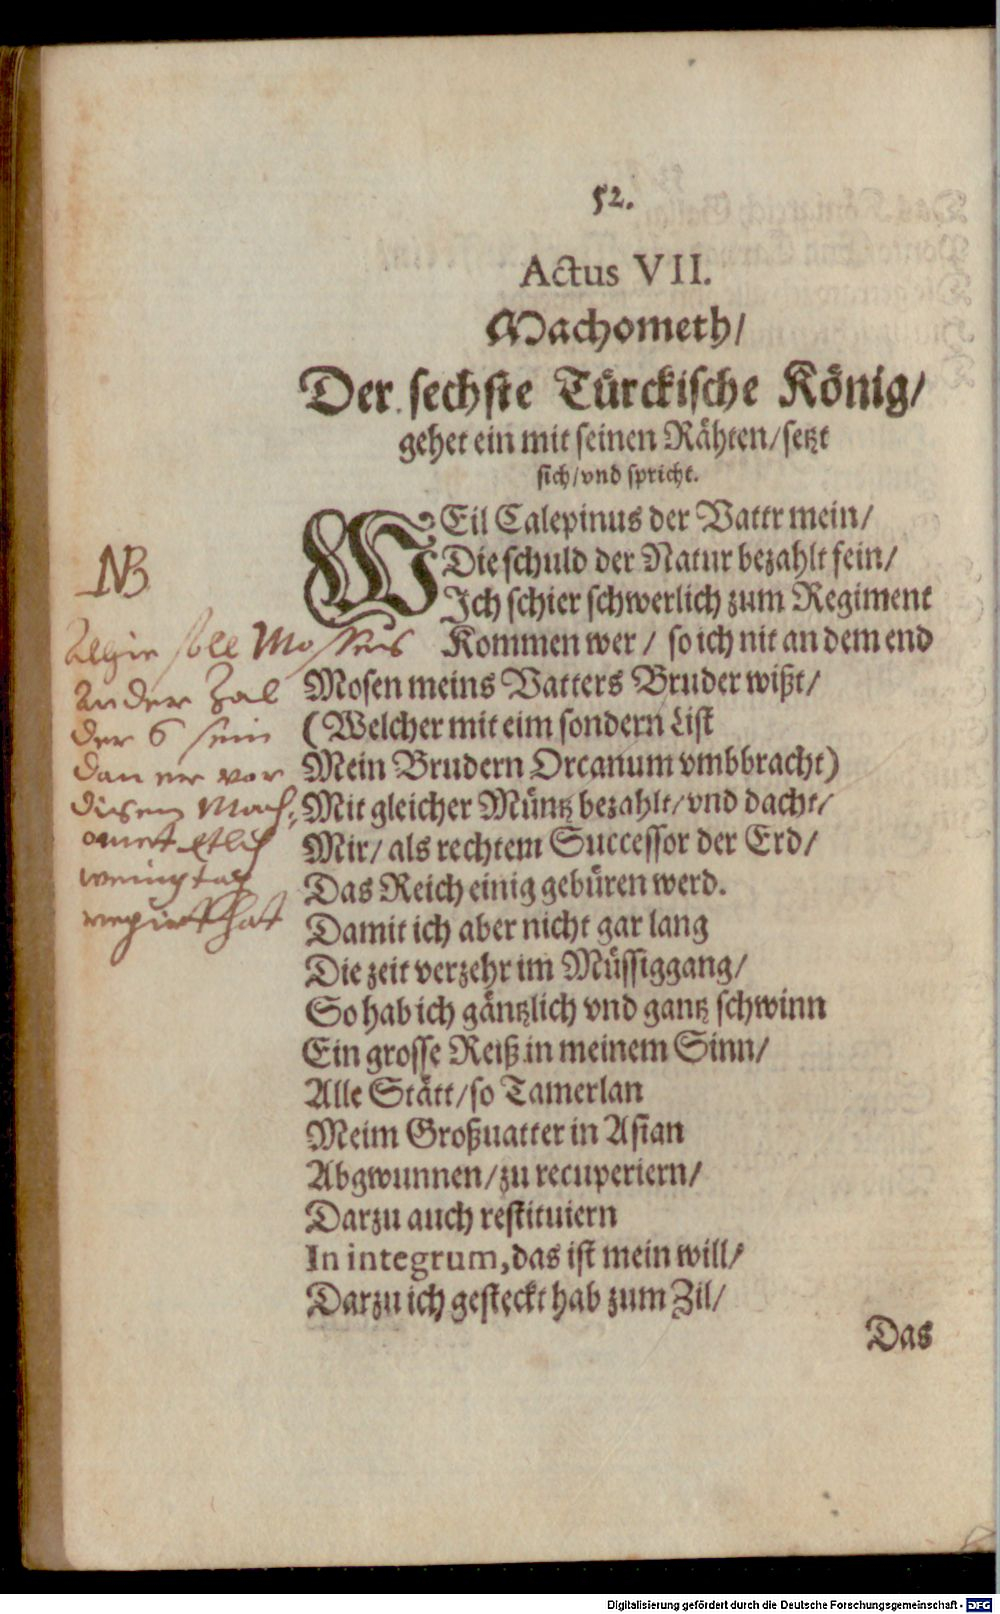 52.
Actus VII.
Machometh/
Der sechste Türckische König/
gehet ein mit seinen Rähten/setzt
sich/vnd spricht.
WEil Calepinus der Vattr mein/
Die schuld der Natur bezahlt fein/
Ich schier schwerlich zum Regiment
Kommen wer / so ich nit an dem end
Mosen meins Vatters Bruder wißt/
(Welcher mit eim sondern List
Mein Brudern Orcanum vmbbracht)
Mit gleicher Müntz bezahlt/vnd dacht/
Mir/ als rechtem Successor der Erd/
Das Reich einig gebüren werd.
Damit ich aber nicht gar lang
Die zeit verzehr im Müssiggang/
So hab ich gäntzlich vnd gantz schwinn
Ein grosse Reiß in meinem Sinn/
Alle Stätt/so Tamerlan
Meim Großuatter in Asian
Abgwunnen/zu recuperiern/
Darzu auch restituiern
In integrum, das ist mein will/
Darzu ich gesteckt hab zum Zil/
Das
NB
soll
an der Zal
der 6 sein
dan er vor
disem Mach-
omet etlich
wenig tag
regiert hat
Digitalisierung gefördert durch die Deutsche Forschungsgemeinschaft - DFG